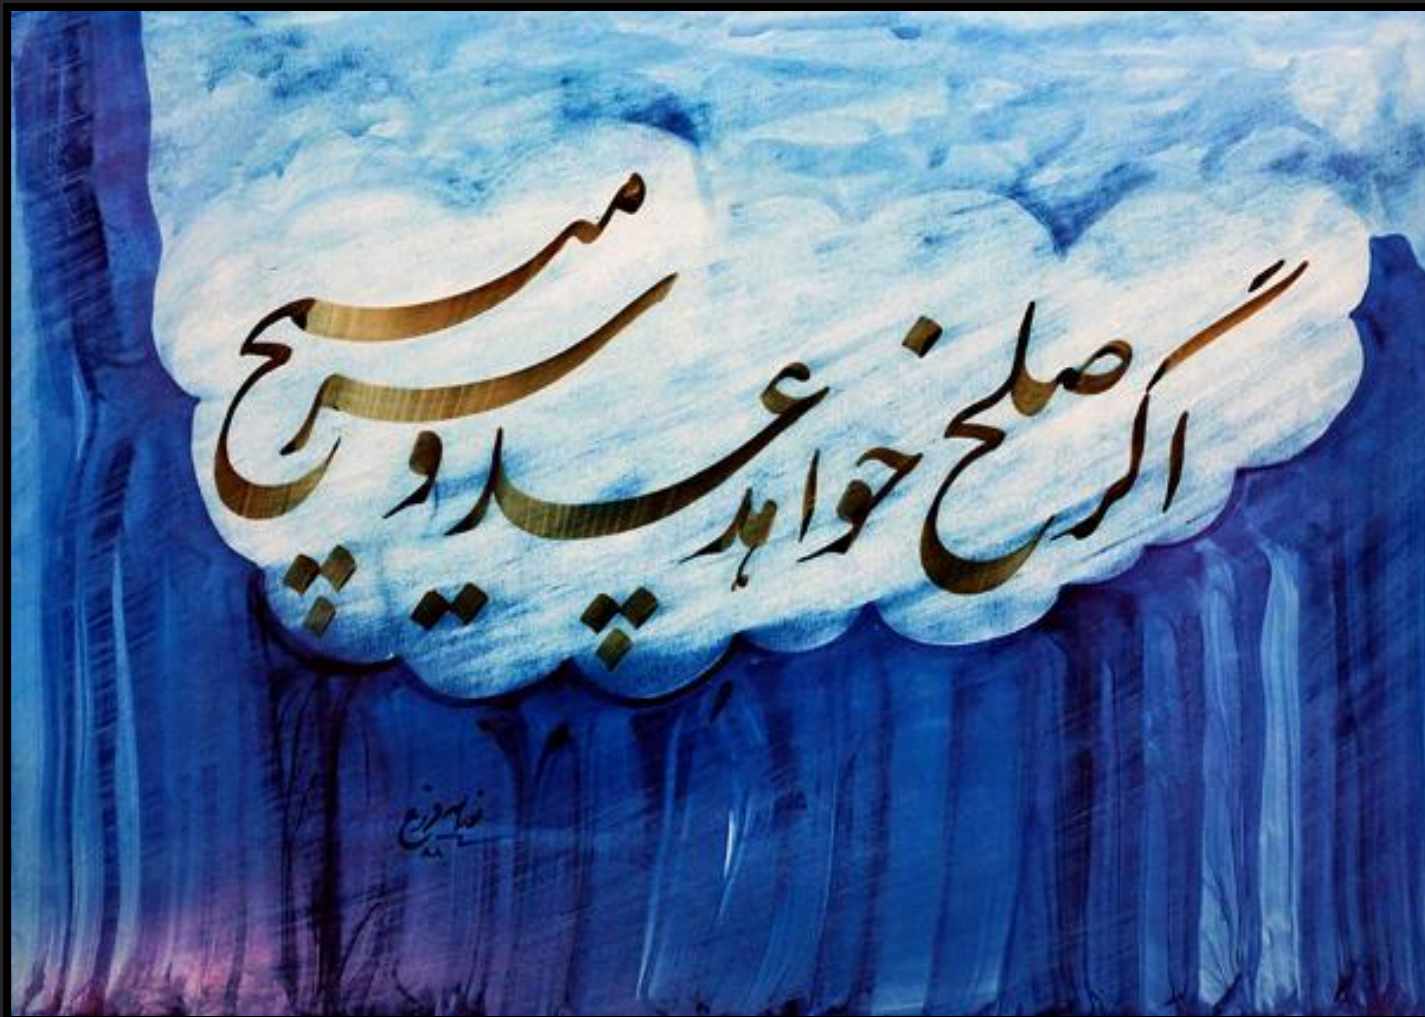 اگر صلح خواهد عدو سر مپیچ
۸۸